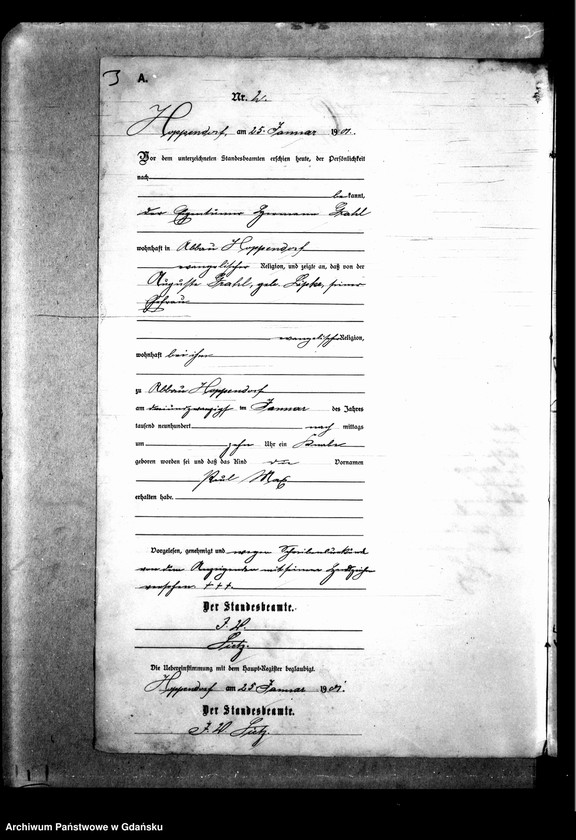 A.
Nr. 2.
Hoppendorf, am 25. Januar 1901.
Vor dem unterzeichneten Standesbeamten erschien heute, der Persönlichkeit
nach
bekannt,
der Eigentümer Hermann
wohnhaft in Abbau Hoppendorf
evangelischer Religion, und zeigte an, daß von der
Auguste geb. seiner
Ehefrau
evangelischer Religion,
wohnhaft bei ihm
zu Abbau Hoppendorf
am im Januar des Jahres
tausend neunhundert nach mittags
um zehn Uhr ein Knabe
geboren worden sei und daß das Kind die Vornamen
Paul Max
erhalten habe.
Vorgelesen, genehmigt und wegen Schreibensunkunde
von dem Anzeigenden mit seinem Handzeichen
versehen +++
Der Standesbeamte.
J. V.
Die Uebereinstimmung mit dem Haupt-Register beglaubigt.
Hoppendorf am 25. Januar 1901.
Der Standesbeamte.
J. V.
Archiwum Państwowe w Gdańsku